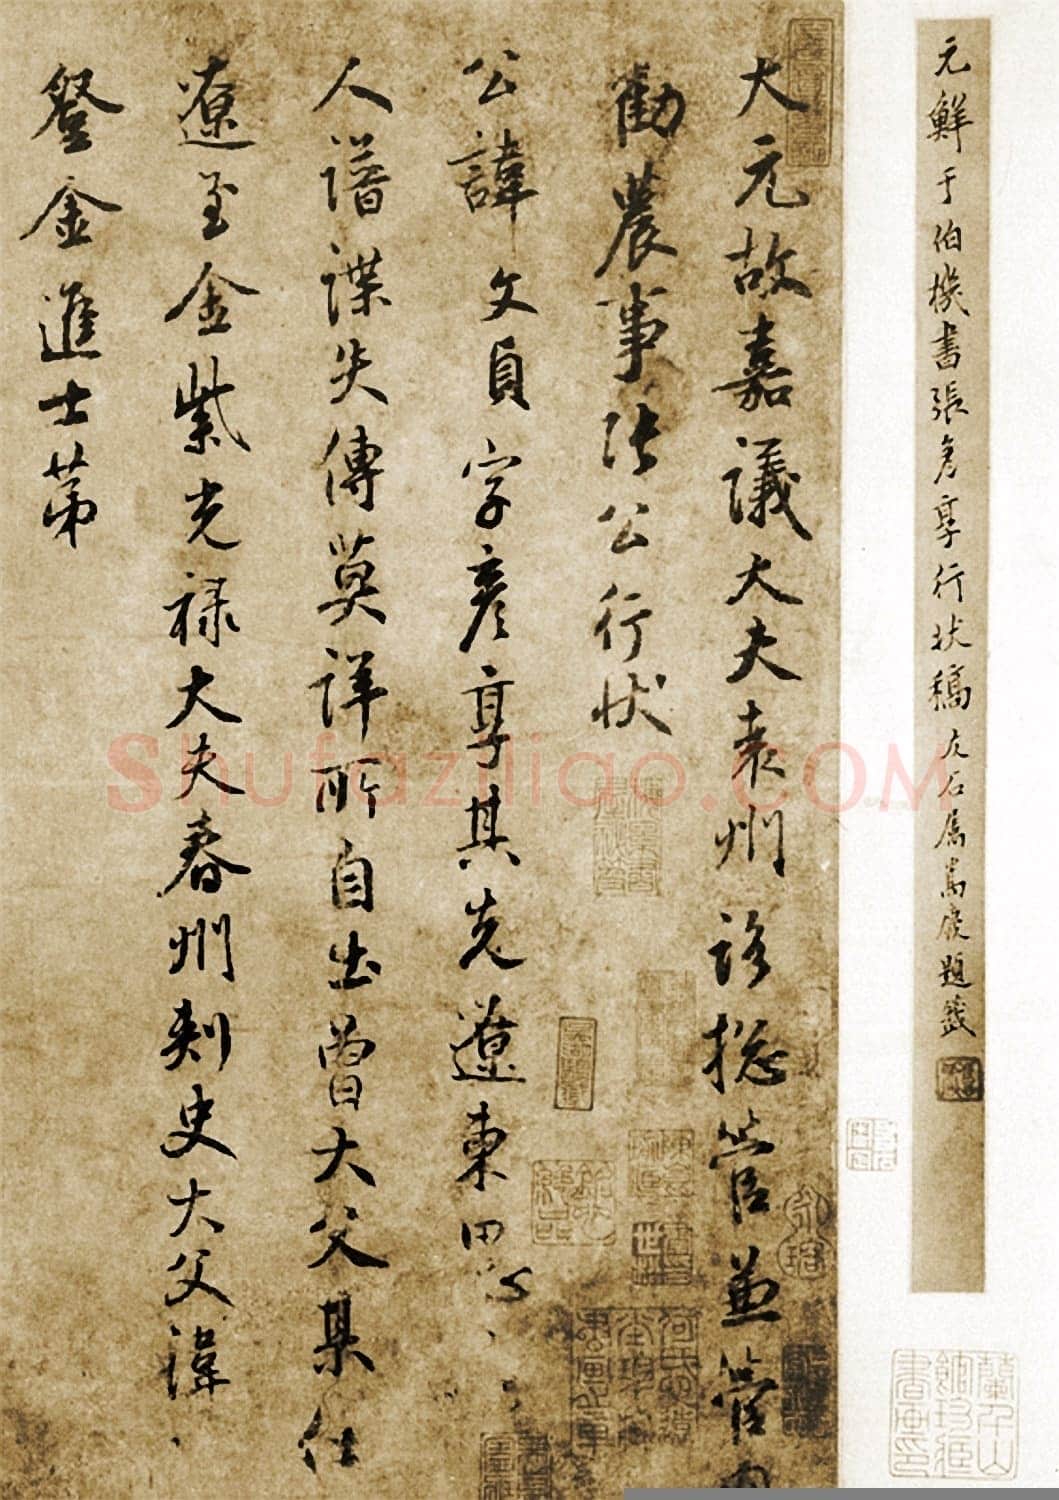 元鮮于伯機書張彥享行狀稿 題籤
大元故嘉議大夫袁州路捴管兼管內
勸農事張公行狀
公諱文貞字彥享其先遼東
人譜諜失傳莫詳所自出曾大父某仕
遼至金紫光祿大夫春州刺史大父諱
登金進士第
Shufaziliao.COM